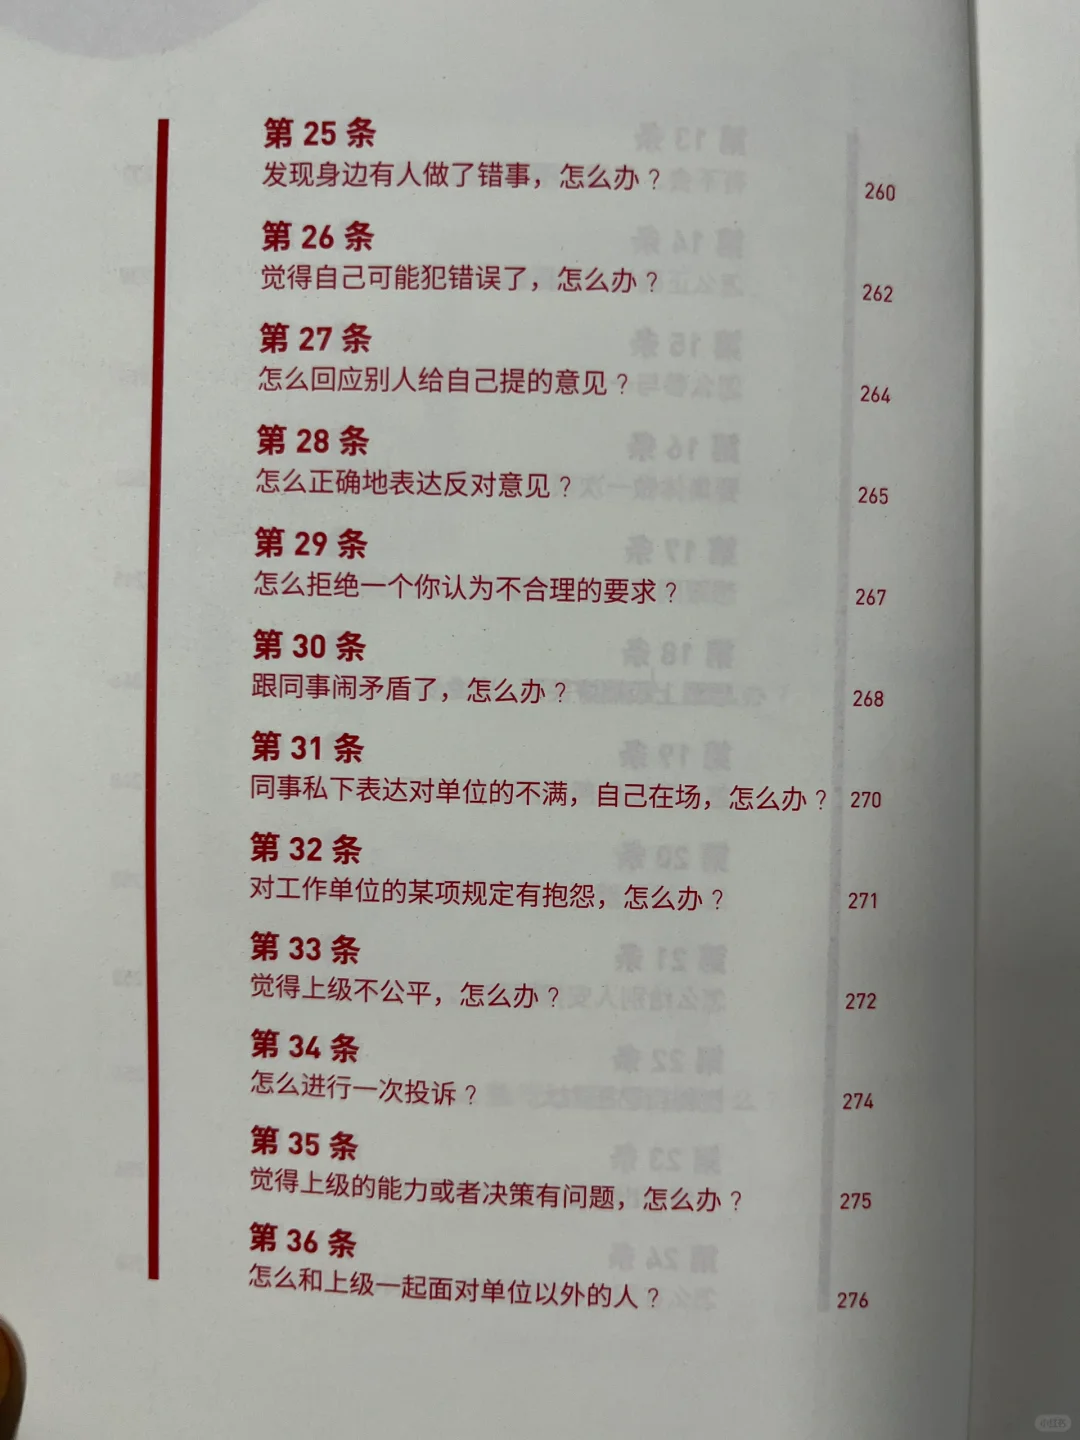 第 25 条
发现身边有人做了错事，怎么办？ 260
第 26 条
觉得自己可能犯错误了，怎么办？ 262
第 27 条
怎么回应别人给自己提的意见？ 264
第 28 条
怎么正确地表达反对意见？ 265
第 29 条
怎么拒绝一个你认为不合理的要求？ 267
第 30 条
跟同事闹矛盾了，怎么办？ 268
第 31 条
同事私下表达对单位的不满，自己在场，怎么办？ 270
第 32 条
对工作单位的某项规定有抱怨，怎么办？ 271
第 33 条
觉得上级不公平，怎么办？ 272
第 34 条
怎么进行一次投诉？ 274
第 35 条
觉得上级的能力或者决策有问题，怎么办？ 275
第 36 条
怎么和上级一起面对单位以外的人？ 276
小红书